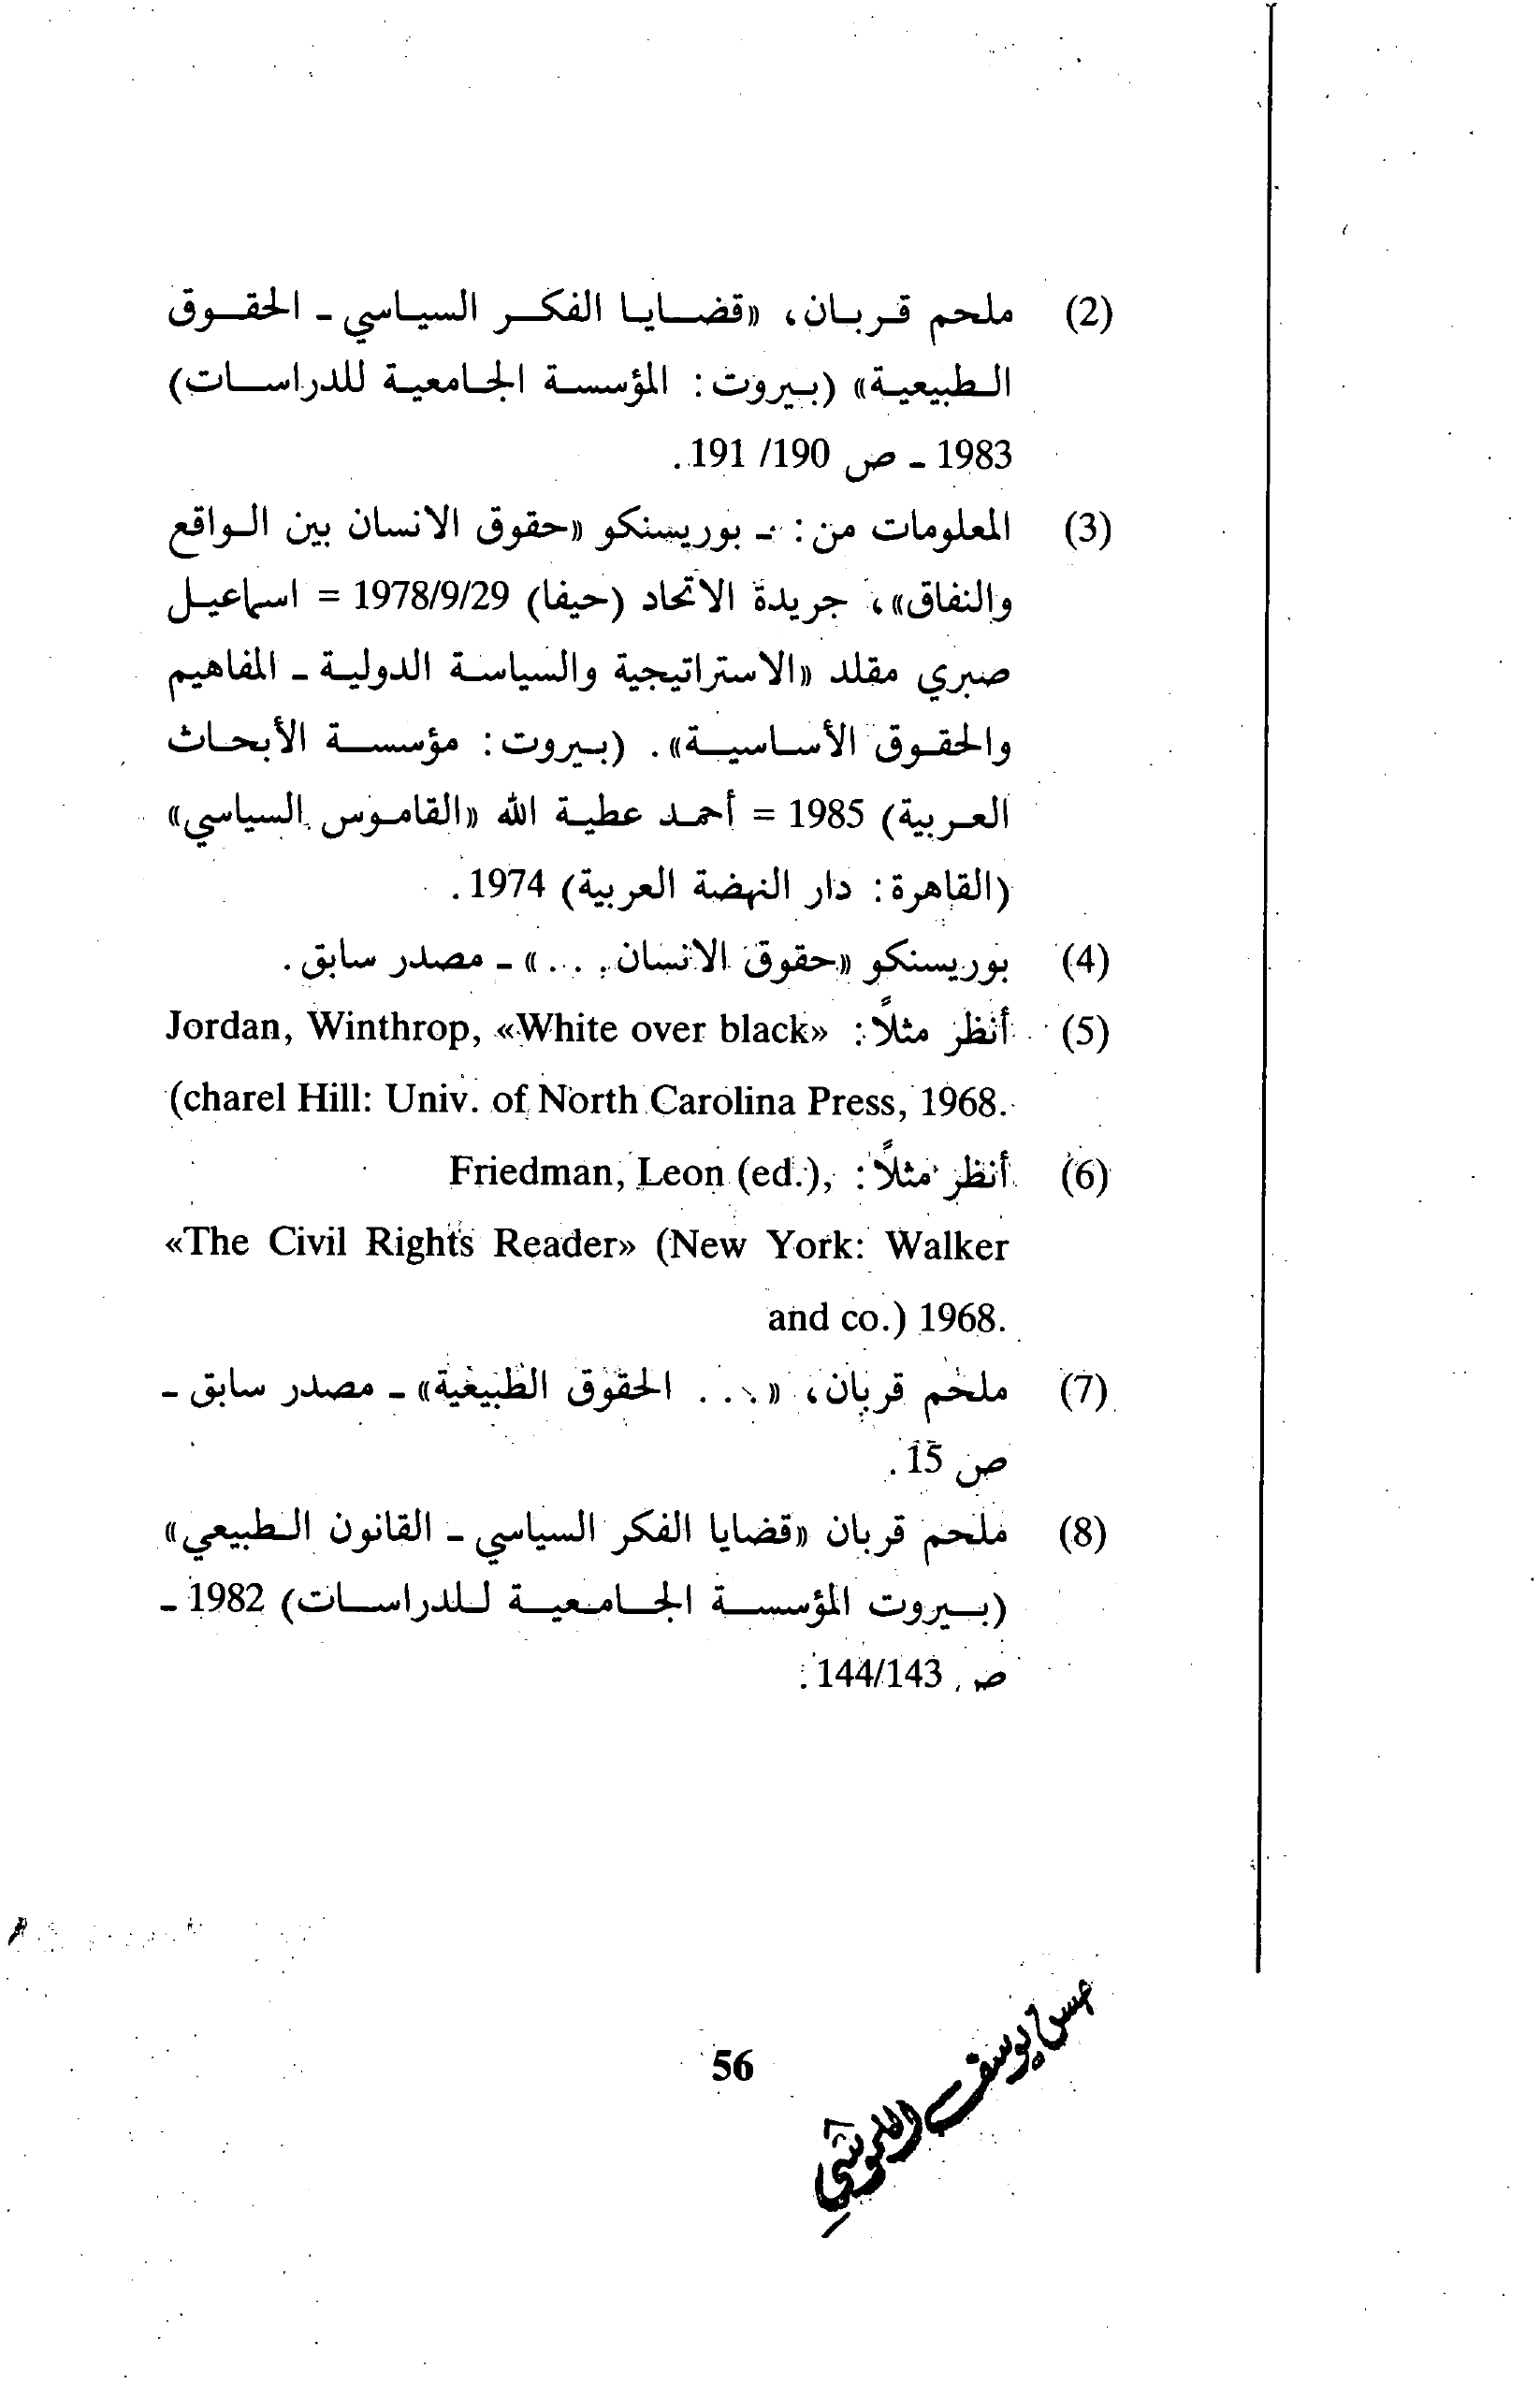 (2) ملحم قربان، «قضايا الفكر السياسي - الحقوق
الطبيعية» (بيروت: المؤسسة الجامعية للدراسات)
1983 - ص 190/ 191.
(3) المعلومات من: - بوريسنكو «حقوق الانسان بين الواقع
والنفاق»، جريدة الاتحاد (حيفا) 1978/9/29 = اسماعيل
صبري مقلد «الاستراتيجية والسياسة الدولية - المفاهيم
والحقوق الأساسية». (بيروت: مؤسسة الأبحاث
العربية) 1985 = أحمد عطية الله «القاموس السياسي»
(القاهرة: دار النهضة العربية) 1974.
(4) بوريسنكو «حقوق الانسان. . .» - مصدر سابق.
(5) أنظر مثلاً: Jordan, Winthrop, «White over black»
(charel Hill: Univ. of North Carolina Press, 1968.
(6) أنظر مثلاً: Friedman, Leon (ed.),
«The Civil Rights Reader» (New York: Walker
and co.) 1968.
(7) ملحم قربان، «. . . الحقوق الطبيعية» - مصدر سابق -
ص 15.
(8) ملحم قربان «قضايا الفكر السياسي - القانون الطبيعي»
(بيروت المؤسسة الجامعية للدراسات) 1982 -
ص 144/143.
56
يوسف